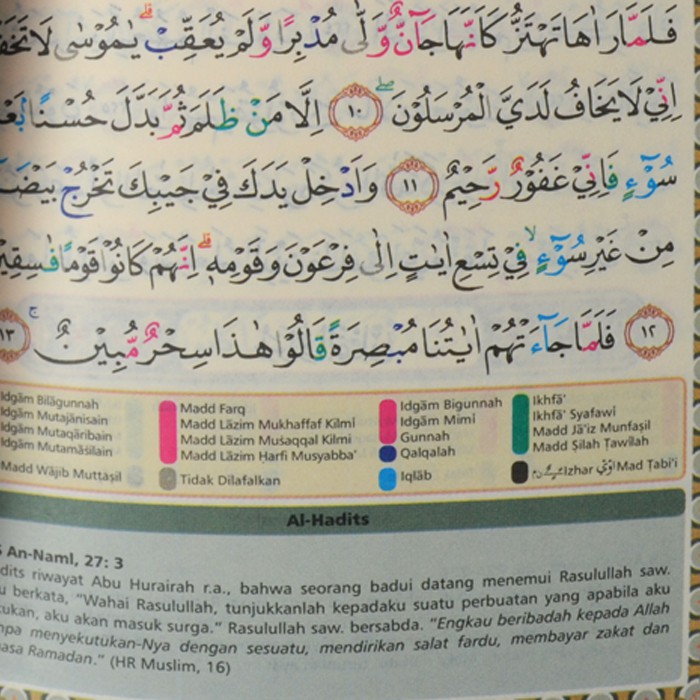 فَلَمَّا رَاٰهَا تَهْتَزُّ كَاَنَّهَا جَاۤنٌّ وَّلّٰى مُدْبِرًا وَّلَمْ يُعَقِّبْۗ يٰمُوْسٰى لَا
اِنِّيْ لَا يَخَافُ لَدَيَّ الْمُرْسَلُوْنَۖ ۝١٠ اِلَّا مَنْ ظَلَمَ ثُمَّ بَدَّلَ حُسْنًاۢ
سُوْۤءٍ فَاِنِّيْ غَفُوْرٌ رَّحِيْمٌ ۝١١ وَاَدْخِلْ يَدَكَ فِيْ جَيْبِكَ تَخْرُجْ
مِنْ غَيْرِ سُوْۤءٍۙ فِيْ تِسْعِ اٰيٰتٍ اِلٰى فِرْعَوْنَ وَقَوْمِهٖۗ اِنَّهُمْ كَانُوْا قَوْمًا
۝١٢ فَلَمَّا جَاۤءَتْهُمْ اٰيٰتُنَا مُبْصِرَةً قَالُوْا هٰذَا سِحْرٌ مُّبِيْنٌۚ ۝١٣
Idgām Bilāgunnah
Idgām Mutajānisain
Idgām Mutaqāribain
Idgām Mutamāsilain
Madd Wājib Muttaṣil
Madd Farq
Madd Lāzim Mukhaffaf Kilmī
Madd Lāzim Muṡaqqal Kilmī
Madd Lāzim Ḥarfi Musyabba'
Tidak Dilafalkan
Idgām Bigunnah
Idgām Mimī
Gunnah
Qalqalah
Iqlāb
Ikhfā'
Ikhfā' Syafawī
Madd Jā'iz Munfaṣil
Madd Ṣilah Ṭawīlah
Izhar Mad Ṭabi'i
Al-Hadits
An-Naml, 27: 3
riwayat Abu Hurairah r.a., bahwa seorang badui datang menemui Rasulullah saw.
berkata, "Wahai Rasulullah, tunjukkanlah kepadaku suatu perbuatan yang apabila aku
aku akan masuk surga." Rasulullah saw. bersabda. "Engkau beribadah kepada Allah
menyekutukan-Nya dengan sesuatu, mendirikan salat fardu, membayar zakat dan
Ramadan." (HR Muslim, 16)